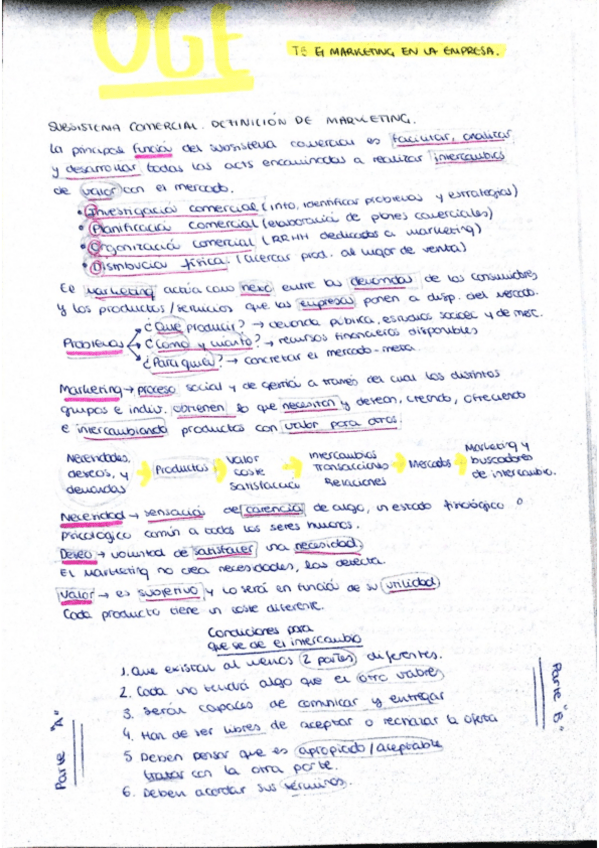 OGE
T5 El MARKETING EN LA EMPRESA.
SUBSISTEMA COMERCIAL. DEFINICIÓN DE MARKETING.
La principal función del subsistema comercial es facilitar, analizar
y desarrollar todas las acts encaminadas a realizar intercambios
de valor con el mercado.
• Investigación comercial (info, identificar problemas y estrategias)
• Planificación comercial (elaboración de planes comerciales)
• Organización comercial (RRHH dedicados a marketing)
• Distribución física. (acercar prod. al lugar de venta)
El marketing actúa como nexo entre las demandas de los consumidores
y los productos/servicios que las empresas ponen a disp. del mercado.
Problemas ¿Que producir? → demanda pública, estudios sociales y de merc.
¿Como y cuanto? → recursos financieros disponibles
¿Para quien? → concretar el mercado-meta.
Marketing → proceso social y de gestión a través del cual los distintos
grupos e indiv. obtienen lo que necesitan y desean, creando, ofreciendo
e intercambiando productos con valor para otros.
Necesidades, deseos, y demandas → Productos → Valor coste satisfacción → Intercambios Transacciones Relaciones → Mercados → Marketing y buscadores de intercambio.
Necesidad → sensación de carencia de algo, un estado fisiológico o
psicologico común a todos los seres humanos.
Deseo → voluntad de satisfacer una necesidad.
El marketing no crea necesidades, las detecta.
Valor → es subjetivo y lo será en función de su utilidad
Cada producto tiene un coste diferente.
Condiciones para
que se de el intercambio
1. Que existan al menos 2 partes diferentes.
2. Cada uno tendrá algo que el otro valore
3. Serán capaces de comunicar y entregar
4. Han de ser libres de aceptar o rechazar la oferta
5 Deben pensar que es apropiado/aceptable
tratar con la otra parte.
6. Deben acordar sus términos.
Parte "A"
Parte "B"